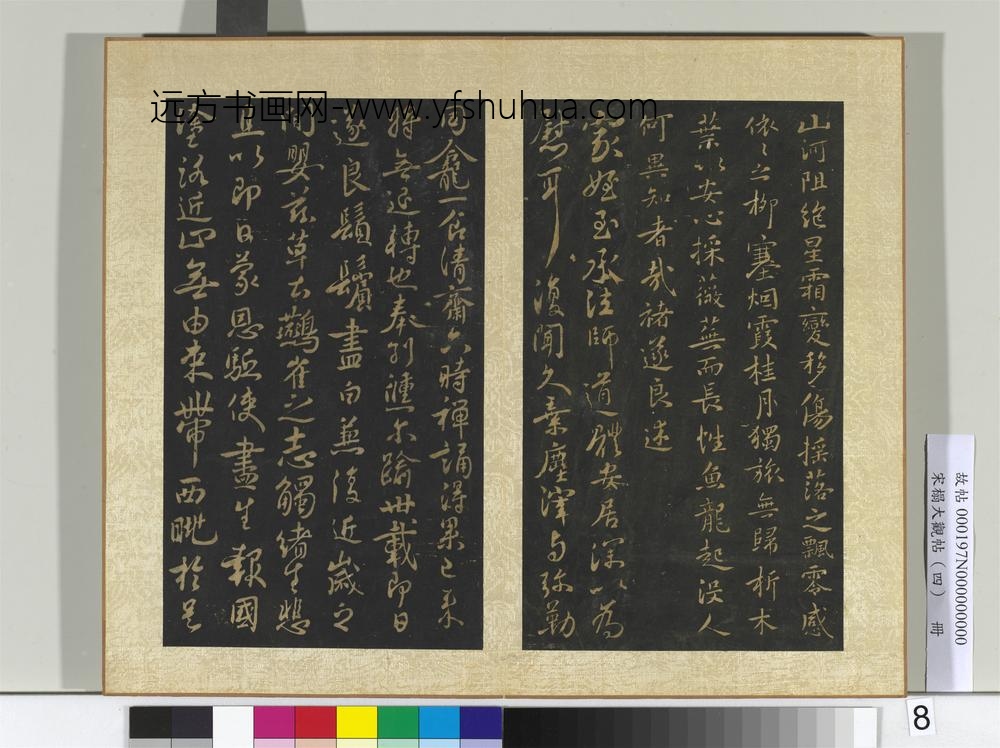 远方书画网-www.yfshuhua.com
山河阻絶星霜變移傷採落之飄零感
依々之柳塞烟霞桂月獨旅無歸析木
葉以安心採薇蕪而長性魚龍起没人
何異知者哉褚遂良述
家姪至承法師道體安居深以為
慰耳復聞久棄塵滓与弥勒
同龕一食清齋六時禪誦得果已来
將無退轉也奉別儵尓踰卅載即日
遂良鬚鬢盡白兼復近歲之
間嬰茲草土鷰雀之志觸緒生悲
且以即日蒙恩駈使盡生報國
塗路近止無由束帶西眺於
故帖 000197N000000000
宋榻大觀帖(四) 冊
8